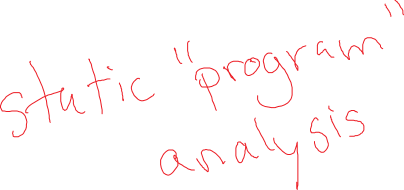 static "program"
analysis